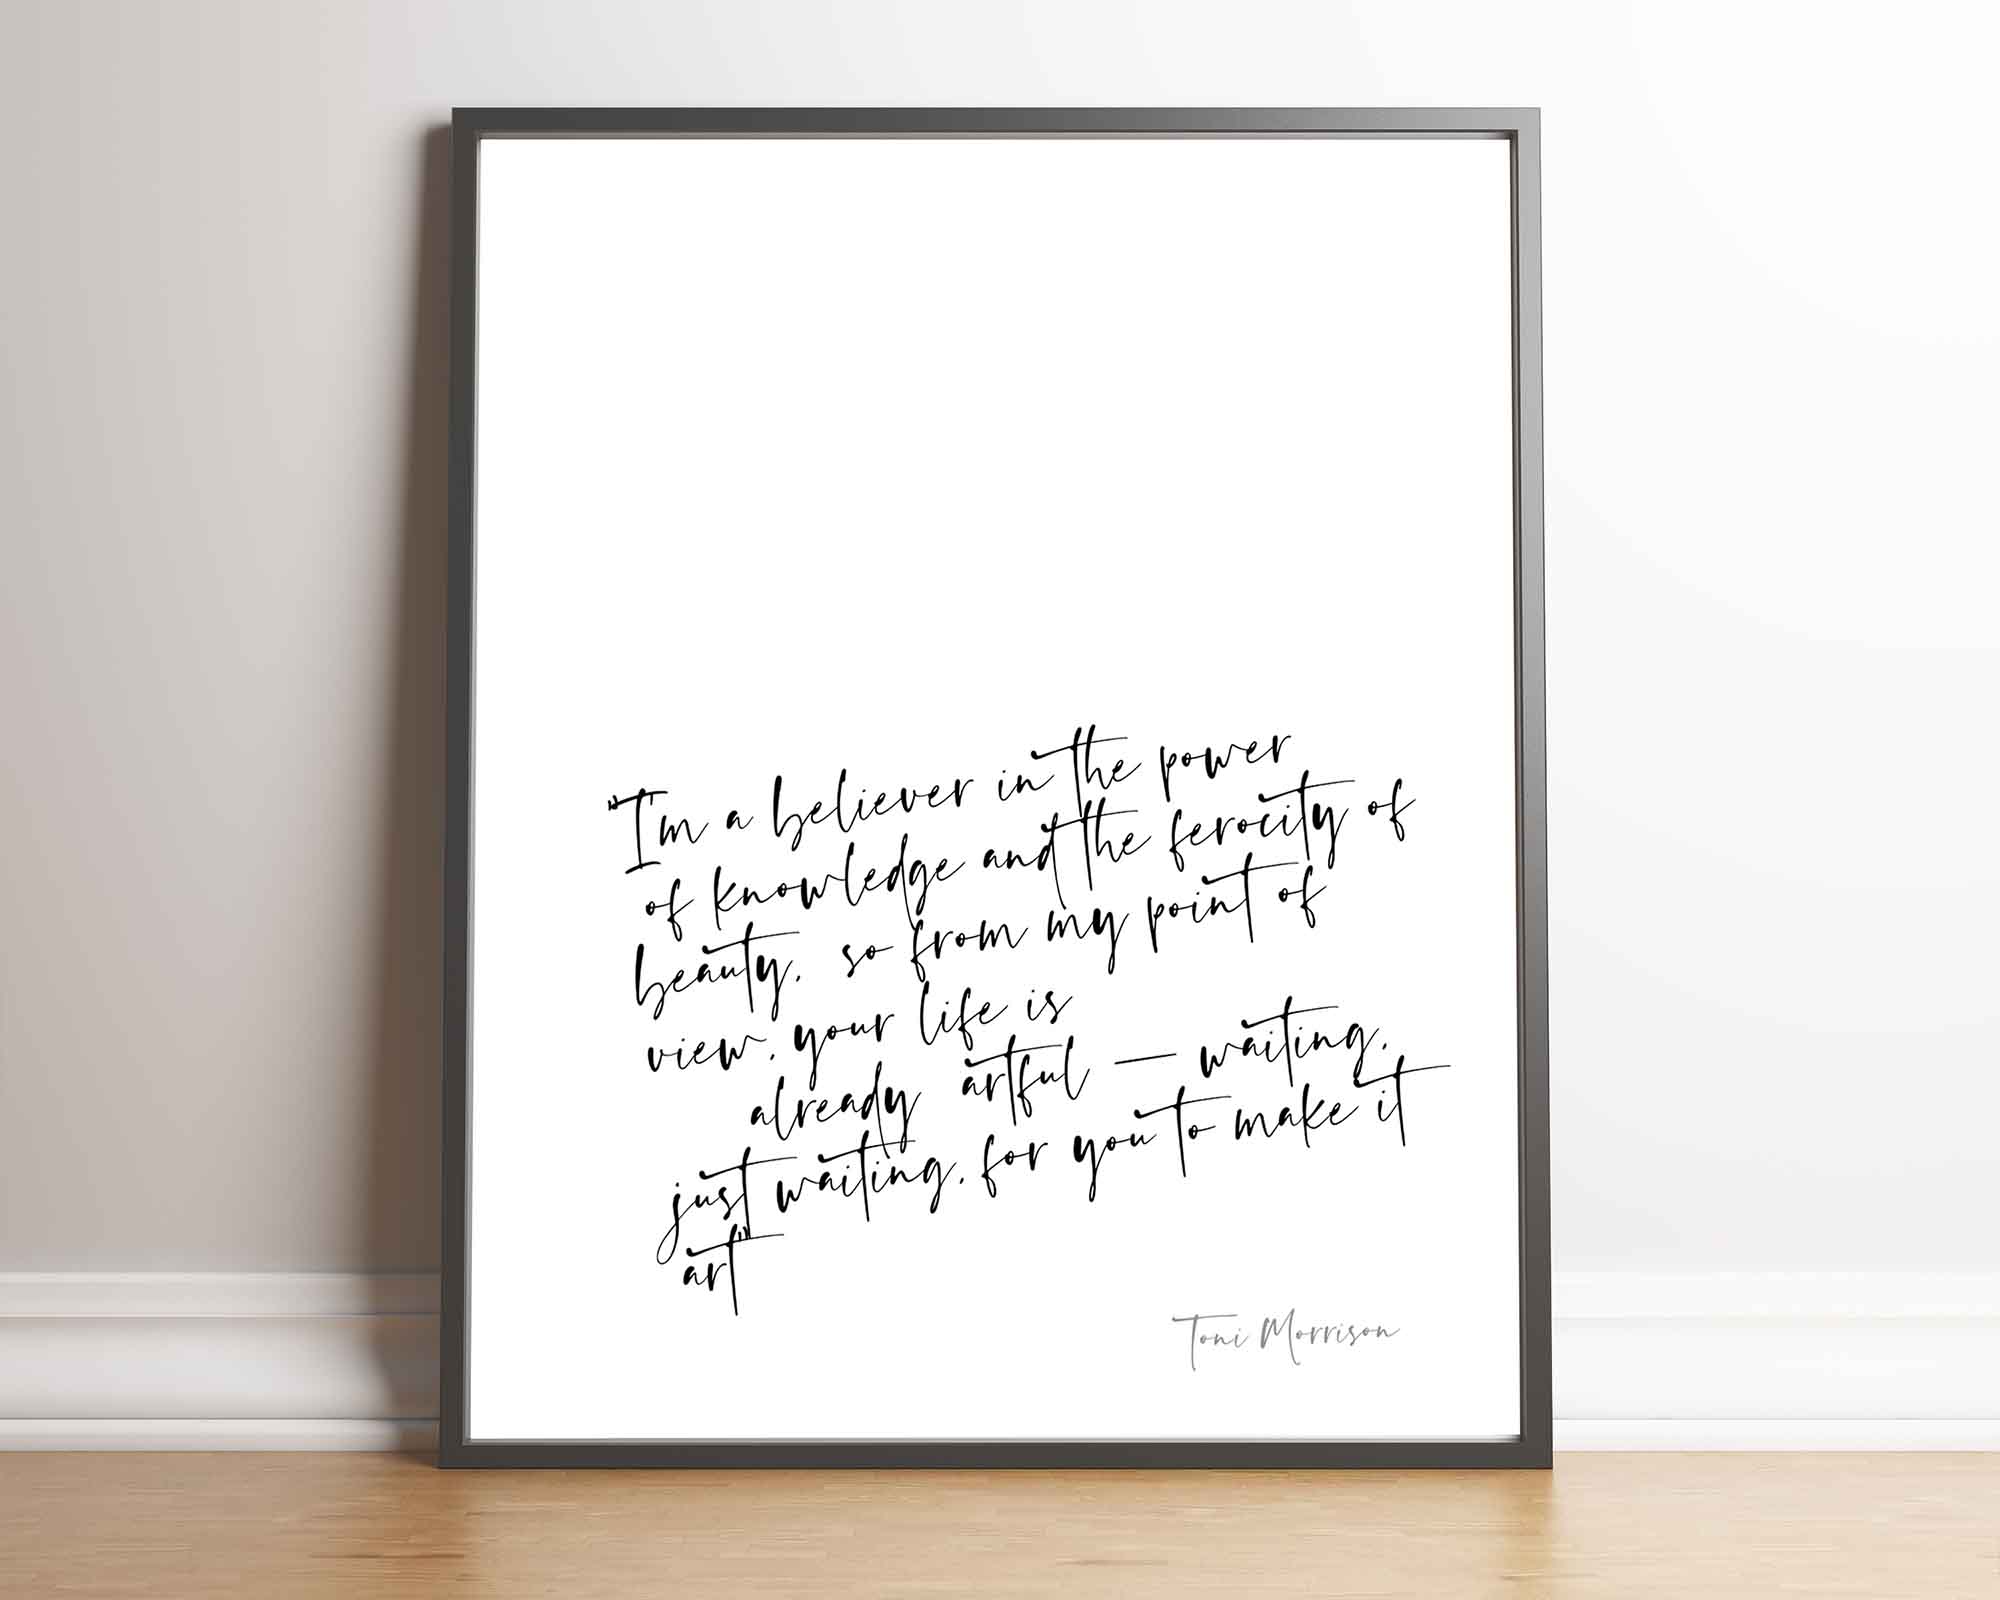 "I'm a believer in the power
of knowledge and the ferocity of
beauty, so from my point of
view, your life is
already artful — waiting,
just waiting, for you to make it
art"
Toni Morrison